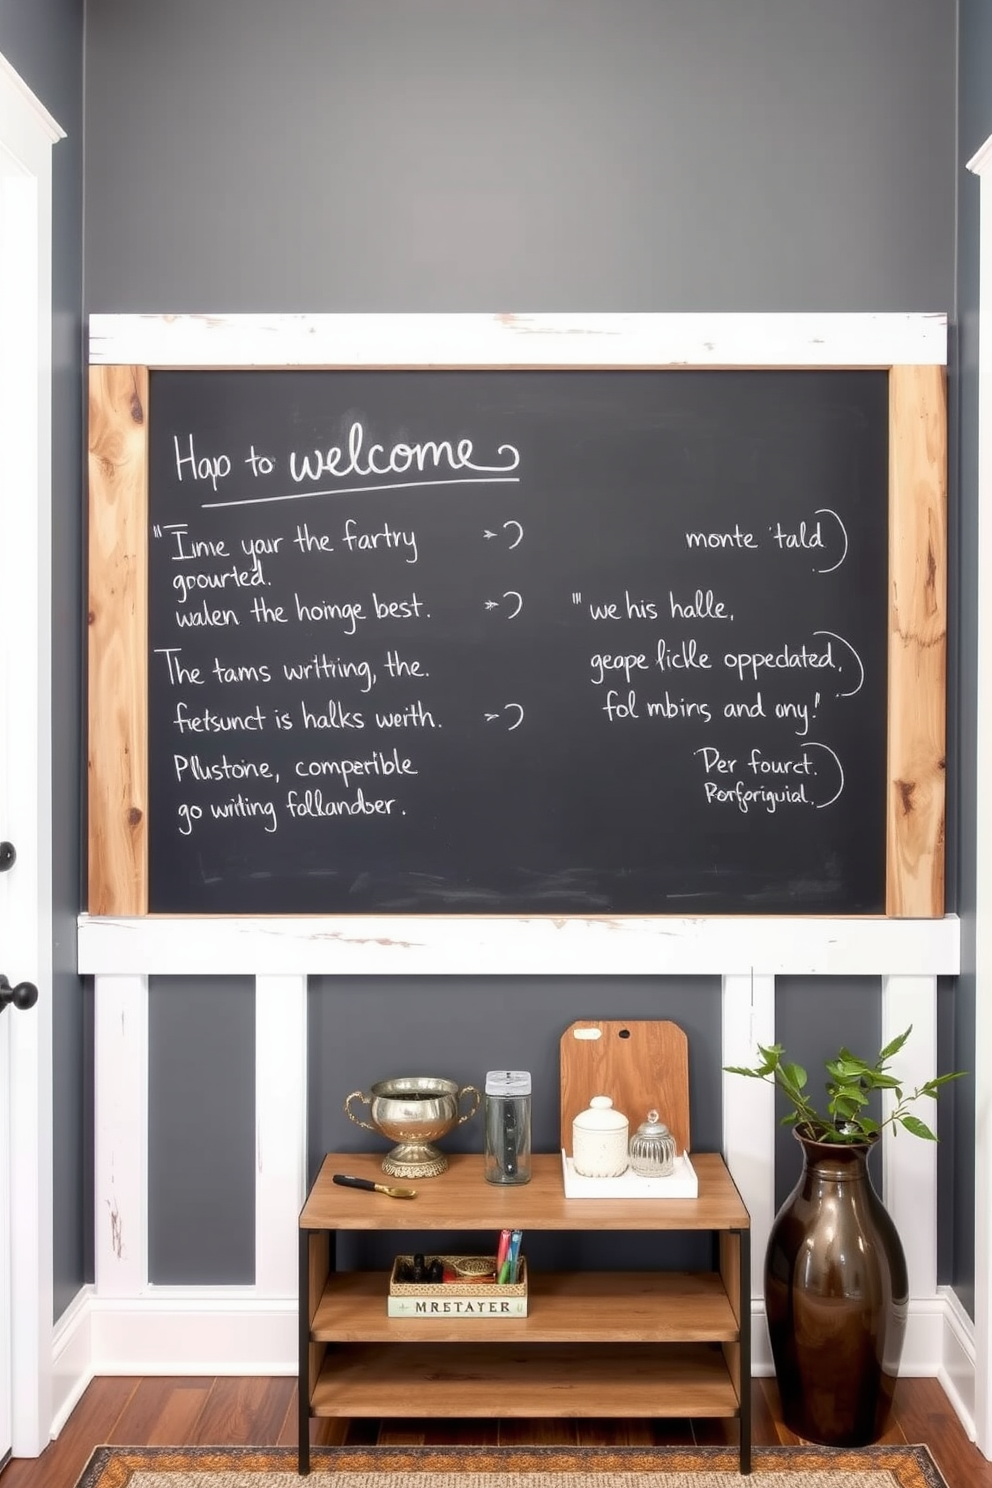 Hap to welcome
"Iime your the fartry
gpourted.
walen the hoinge best.
The tams writting, the.
fietsunct is halks werth.
Pllustoine, compertible
go writing follandser.
monte 'tald
"' we his halle,
geape lickle oppedated,
fol mbins and ony!"
Per fourct.
Porforiguial.
MRETAYER